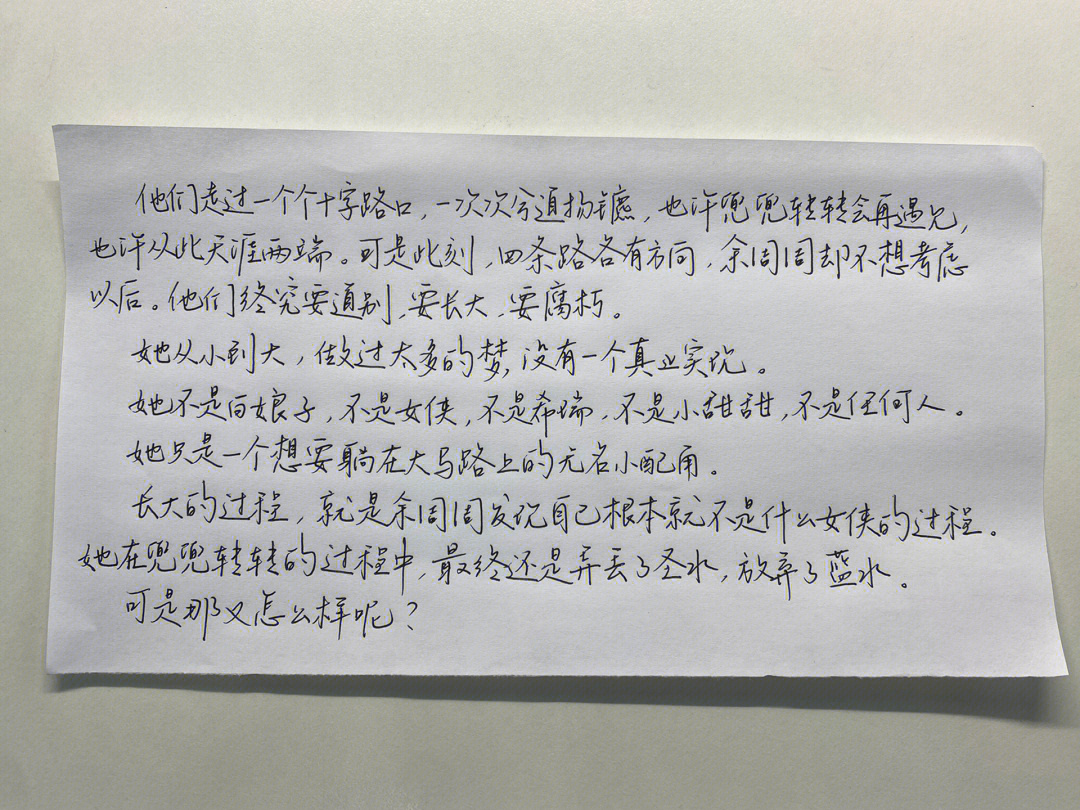 他们走过一个个十字路口，一次次分道扬镳，也许兜兜转转会再遇见，
也许从此天涯两端。可是此刻，四条路各有方向，余周周却不想考虑
以后。他们终究要道别，要长大，要腐朽。
她从小到大，做过太多的梦，没有一个真正实现。
她不是白娘子，不是女侠，不是希瑞，不是小甜甜，不是任何人。
她只是一个想要躺在大马路上的无名小配角。
长大的过程，就是余周周发现自己根本就不是什么女侠的过程。
她在兜兜转转的过程中，最终还是弄丢了圣水，放弃了蓝水。
可是那又怎么样呢？